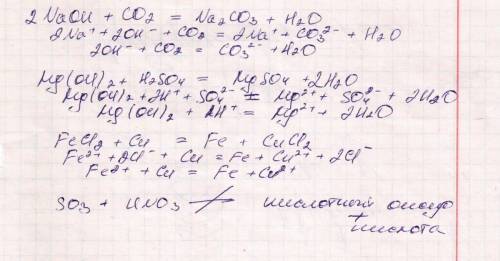 2NaOH + CO₂ = Na₂CO₃ + H₂O
2Na⁺ + 2OH⁻ + CO₂ = 2Na⁺ + CO₃²⁻ + H₂O
2OH⁻ + CO₂ = CO₃²⁻ + H₂O
Mg(OH)₂ + H₂SO₄ = MgSO₄ + 2H₂O
Mg(OH)₂ + 2H⁺ + SO₄²⁻ = Mg²⁺ + SO₄²⁻ + 2H₂O
Mg(OH)₂ + 2H⁺ = Mg²⁺ + 2H₂O
FeCl₂ + Cu = Fe + CuCl₂
Fe²⁺ + 2Cl⁻ + Cu = Fe + Cu²⁺ + 2Cl⁻
Fe²⁺ + Cu = Fe + Cu²⁺
SO₃ + HNO₃ ≠ кислотный оксид
+
кислота